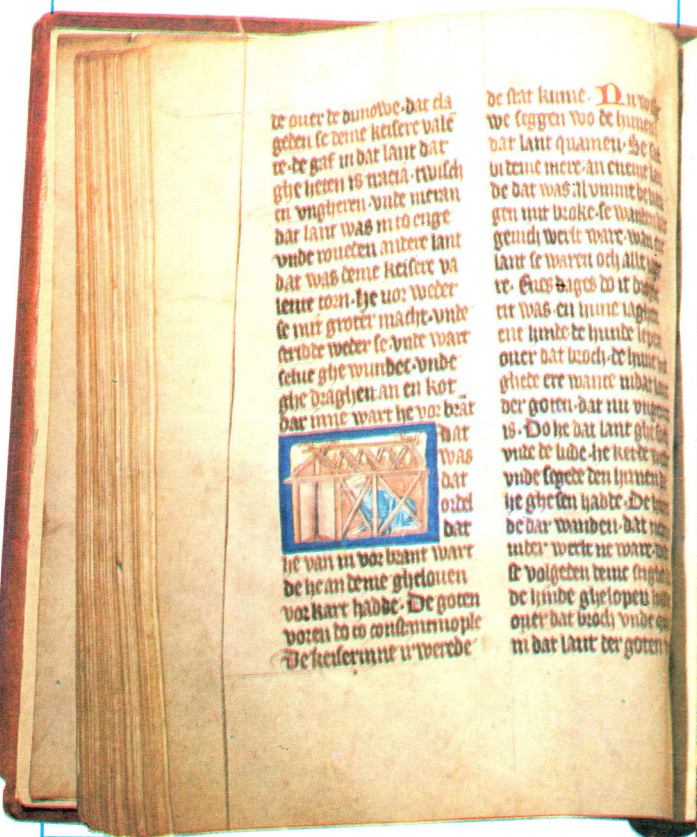 de ouer de dunowe·dat cla
geden se deme keisere vale
te·de gaf in dat lant dat
ghe heten is tracia·twisch
en vngheren·vnde meran
dat lant was in to enge
vnde roueden andere lant
dat was deme keisere va
lente torn·he uor weder
se mit groter macht·vnde
stridde weder se·vnde wart
selue ghe wundet·vnde
ghe draghen an en kot
dar inne wart he vor brat
dat
was
dat
ordel
dat
he van in vor brant wart
de he an deme ghelouen
vor kart hadde·De goten
voren do to constantinople
De keiserinne ir werede
de stat kume· Nu wille
we seggen wo de hunen
dat lant quamen·Se
bi deme mere·an eneme
de dat was al vmme be
gen mit broke·se wanden
genich werlt ware·wan
lant se waren och alle
re· Enes dages do it
tit was·en hune iaghen
ene hinde de hunde
ouer dat broch·de hune
ghede ere wante in dat
der goten·dat nu
is·Do he dat lant ghe
vnde de lude·he kerde
vnde segede den hunen
he ghesen hadde·De
de dar wanden·dat
inder werlt ne ware·
se volgeden deme
de hinde ghelopen
ouer dat broch vnde
in dat lant der goten